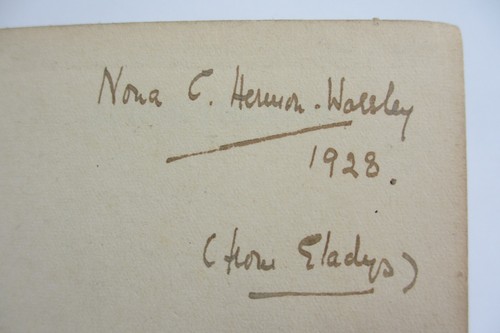 Nona C. Hermon-Worsley
1928.
(from Gladys)